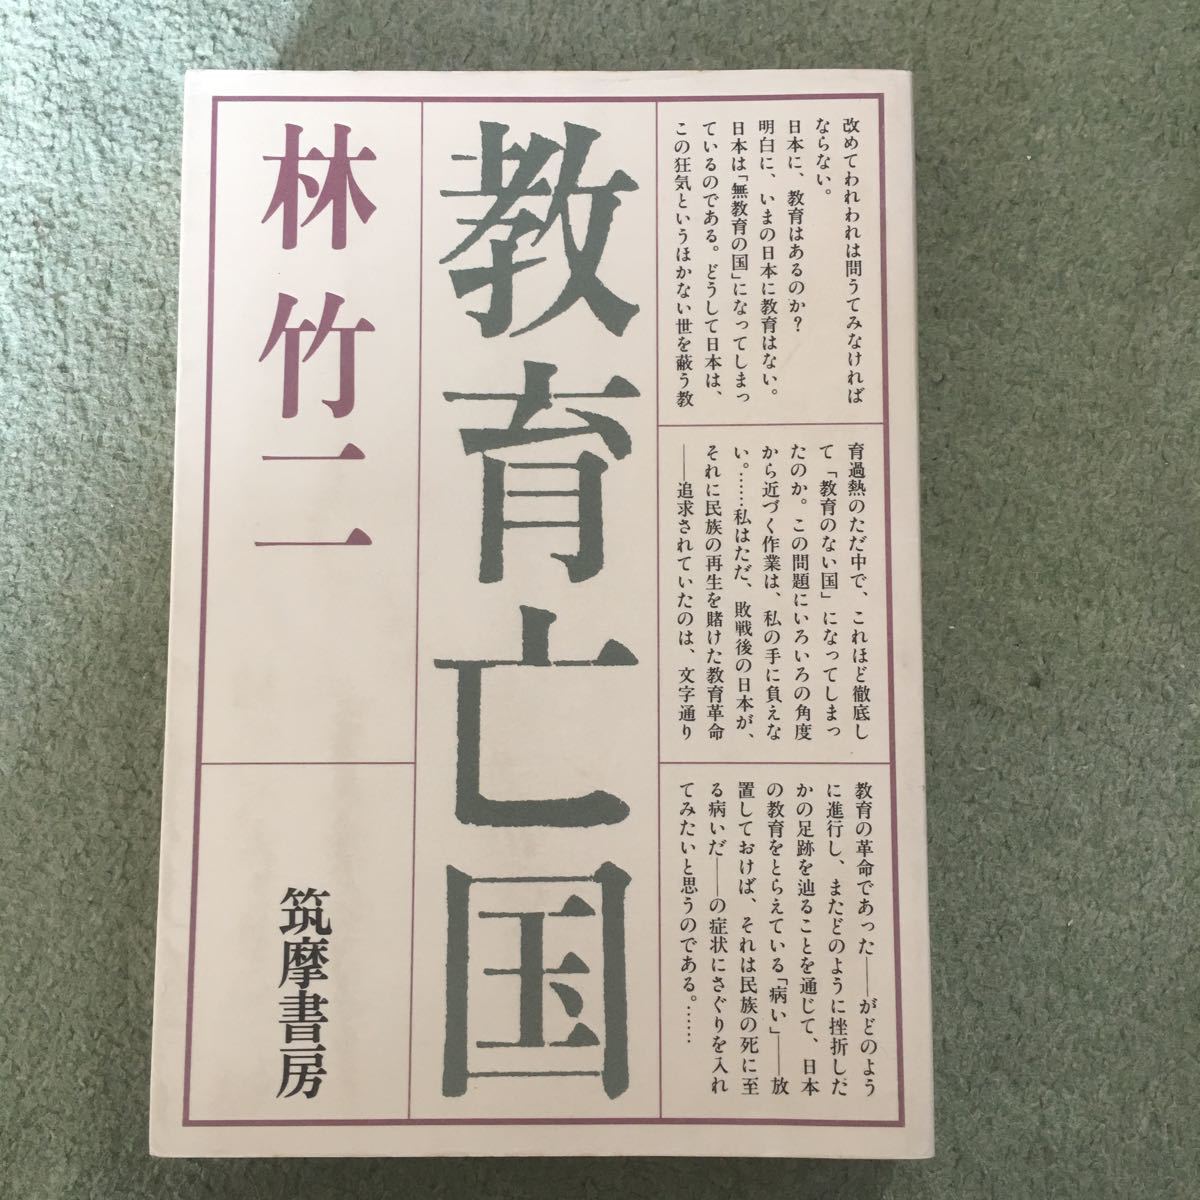 改めてわれわれは問うてみなければ
ならない。
日本に、教育はあるのか？
明白に、いまの日本に教育はない。
日本は「無教育の国」になってしまっ
ているのである。どうして日本は、
この狂気というほかない世を蔽う教
育過熱のただ中で、これほど徹底し
て「教育のない国」になってしまっ
たのか。この問題にいろいろの角度
から近づく作業は、私の手に負えな
い。……私はただ、敗戦後の日本が、
それに民族の再生を賭けた教育革命
――追求されていたのは、文字通り
教育の革命であった――がどのよう
に進行し、またどのように挫折した
かの足跡を辿ることを通じて、日本
の教育をとらえている「病い」――放
置しておけば、それは民族の死に至
る病いだ――の症状にさぐりを入れ
てみたいと思うのである。……
教育亡国
林竹二
筑摩書房